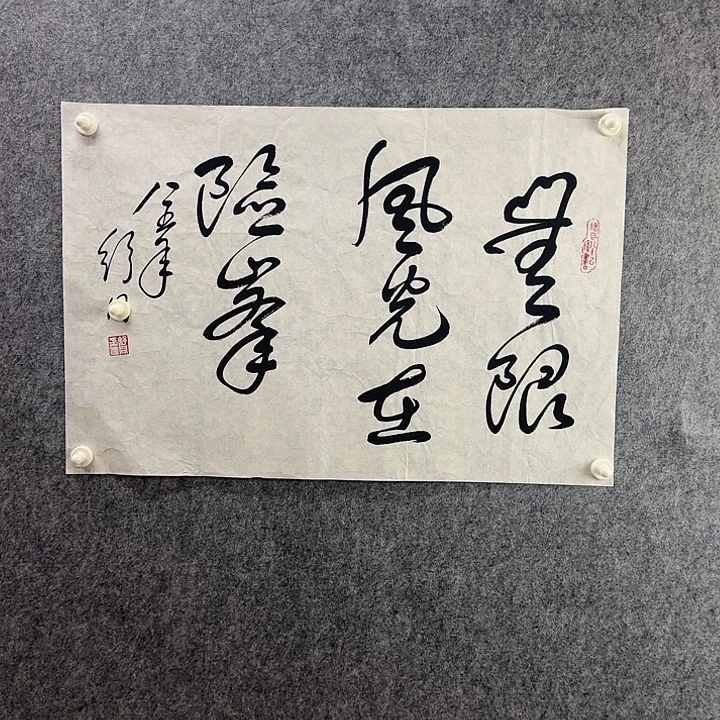 無限
風光在
險峯